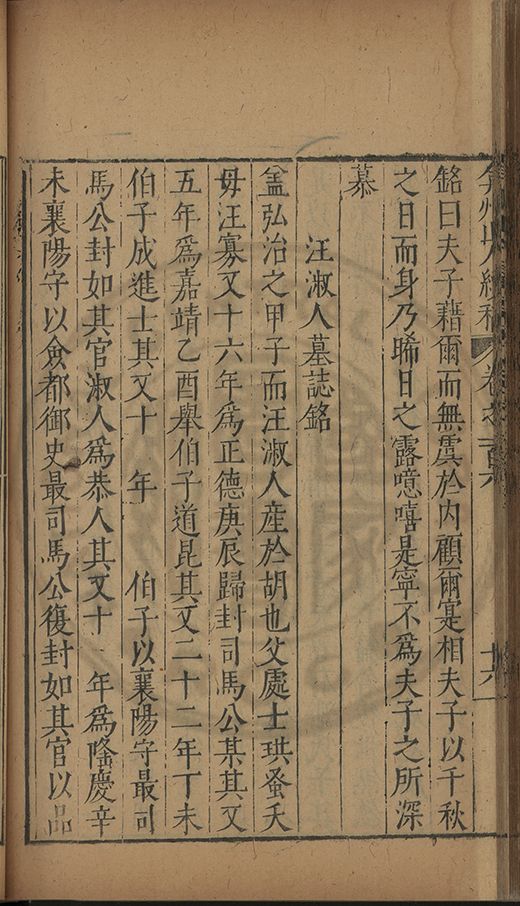 弇州山人續稿 卷之一百六 十六
銘曰夫子藉爾而無虞於內顧爾寔相夫子以千秋
之日而身乃晞日之露噫嘻是寧不為夫子之所深
慕
汪淑人墓誌銘
盖弘治之甲子而汪淑人產於胡也父處士珙蚤夭
毋汪寡又十六年為正德庚辰歸封司馬公某其又
五年為嘉靖乙酉舉伯子道昆其又二十二年丁未
伯子成進士其又十 年 伯子以襄陽守最司
馬公封如其官淑人為恭人其又十 年為隆慶辛
未襄陽守以僉都御史最司馬公復封如其官以品